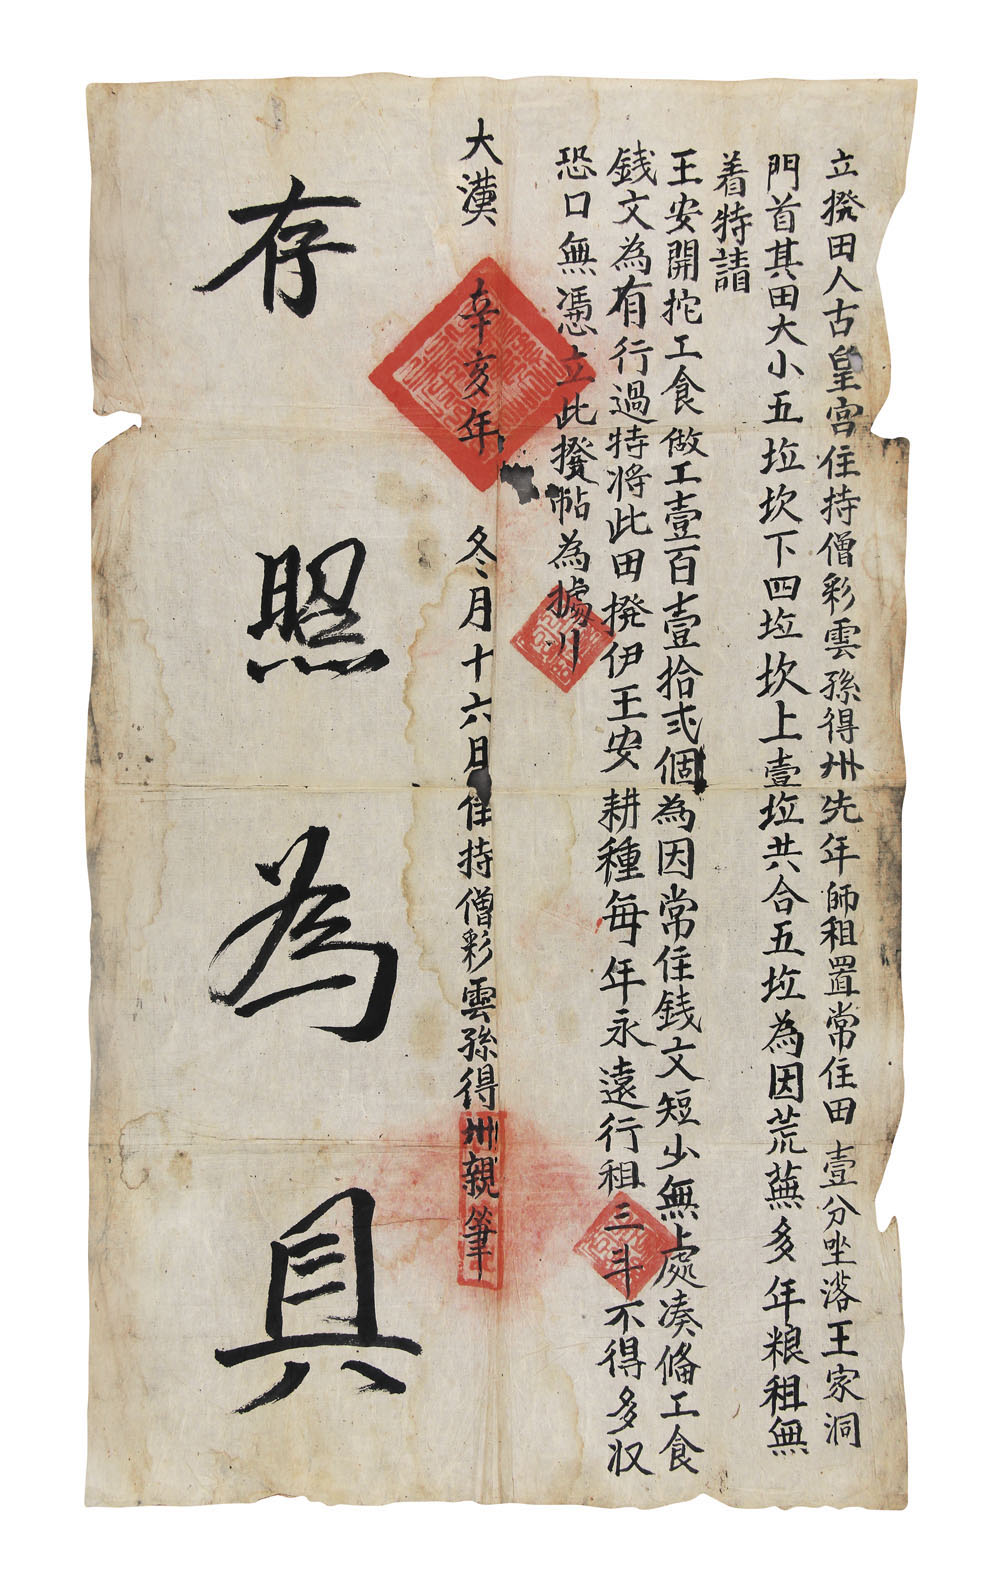 立撥田人古皇宮住持僧彩雲孫得卅先年師祖置常住田壹分坐落王家洞
門首其田大小五坵坎下四坵坎上壹坵共合五坵為因荒蕪多年粮租無
着特請
王安開挖工食做工壹百壹拾弍個為因常住銭文短少無處凑俻工食
銭文為有行過特将此田撥伊王安耕種每年永遠行租三斗不得多収
恐口無憑立此撥帖為據
大漢辛亥年冬月十六日住持僧彩雲孫得卅親筆
存照為具